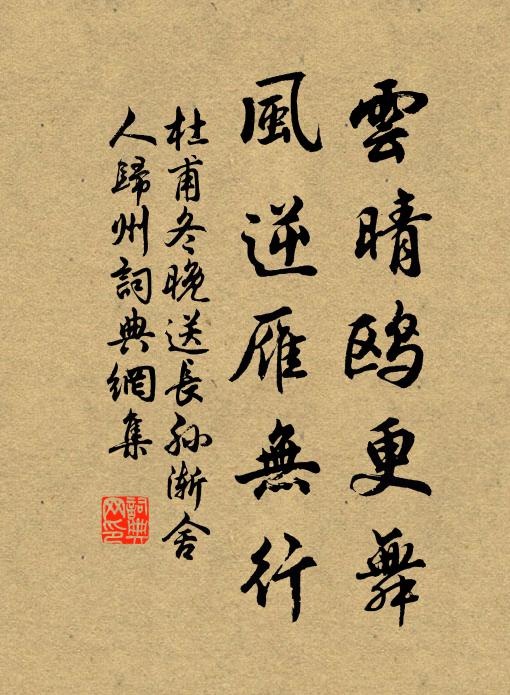 雲晴鸥更舞
風逆雁無行
杜甫冬晚送長孙漸舍
人歸州詞典網集
詞典
网印